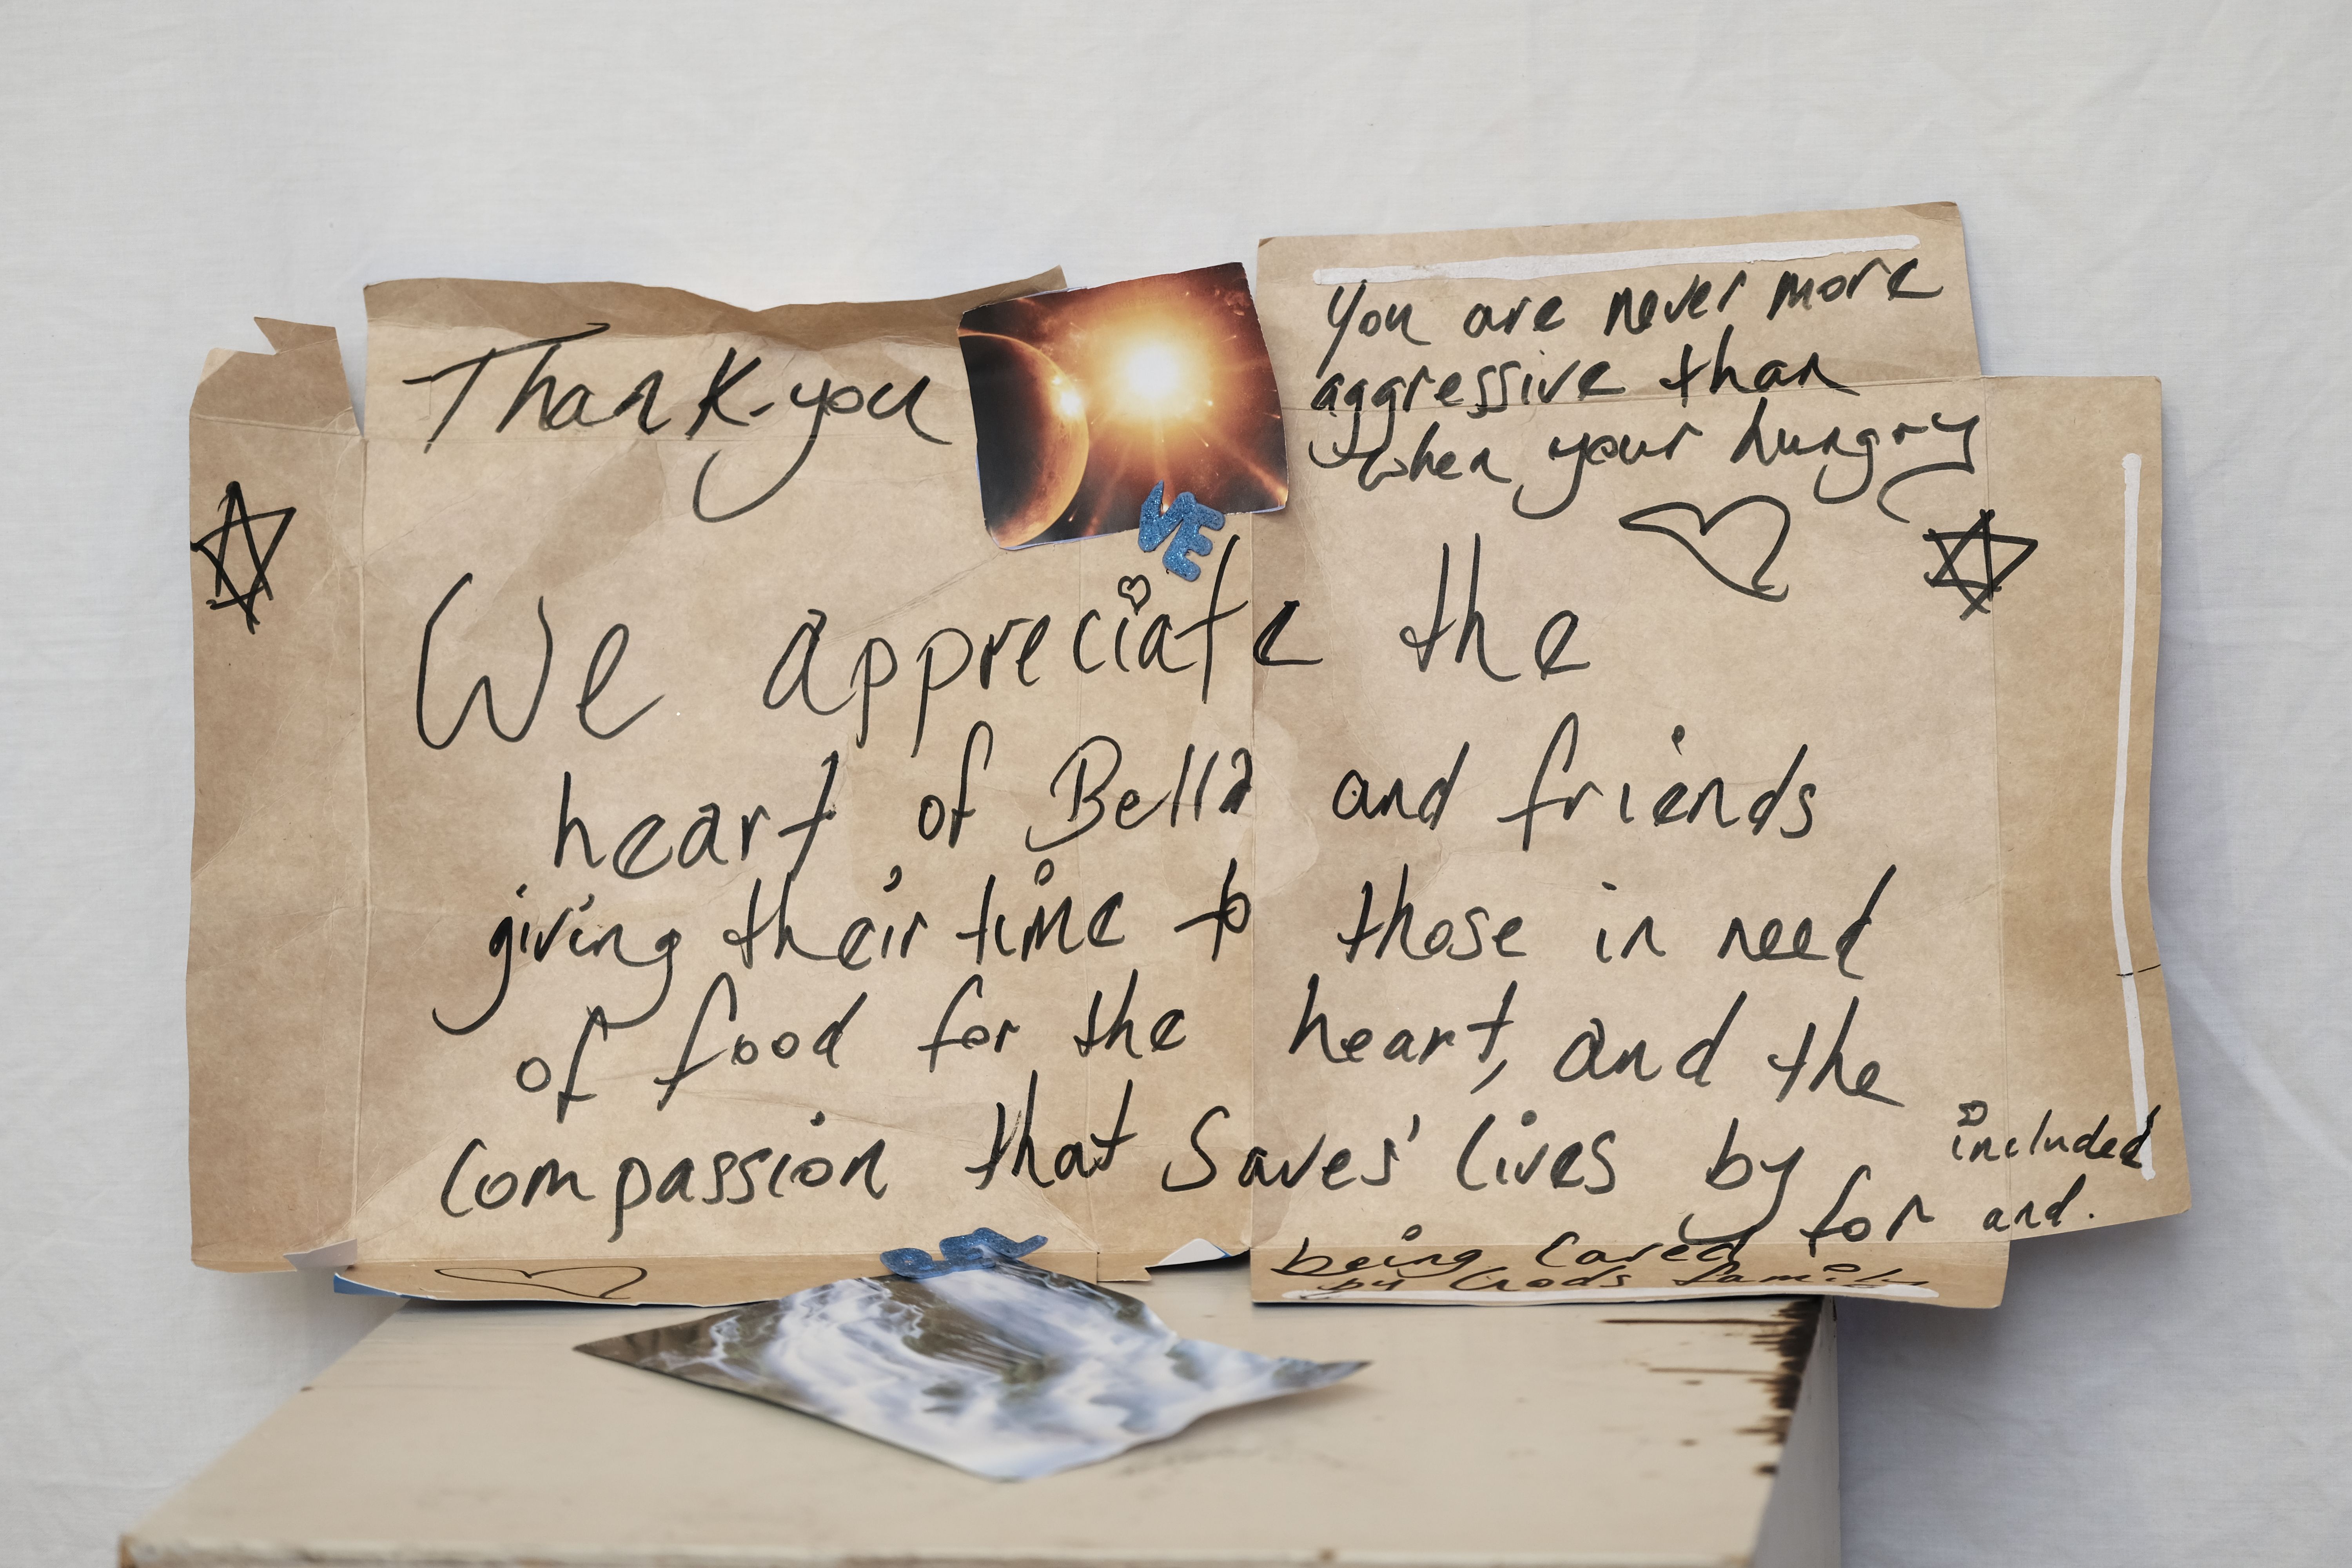 Thank-you
You are never more
aggressive than
when your hungry
VE
We appreciate the
heart of Bella and friends
giving their time to those in need
of food for the heart, and the
compassion that Saves' lives by
being cared for
included and.
by Gods family